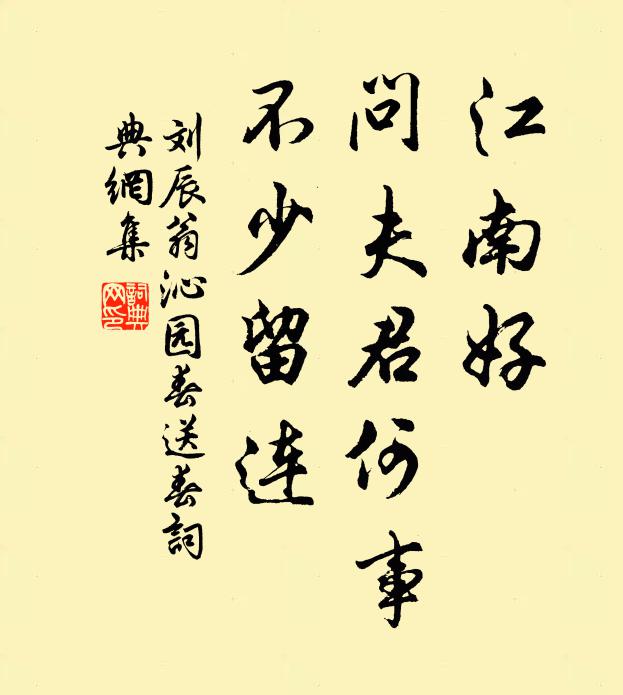 江南好
问夫君何事
不少留连
刘辰翁沁园春送春詞
典網集
詞典
网印